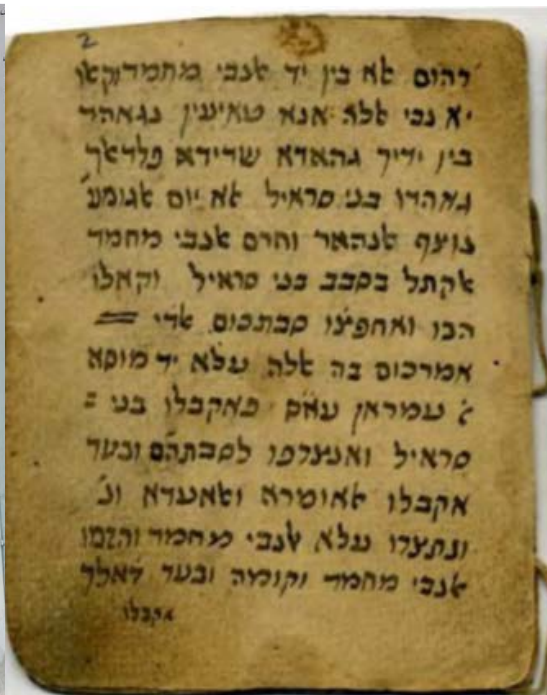 2
רהום ﭏא בין יד ﭏנבי מחמד וקאו
יא נבי ﭏה אנא טאיעין נגאהד
בין ידיך גהאדא שדידא פלדאך
גאהדו בני סראיל ﭏא יום ﭏגומע'
נוצף ﭏנהאר וחרם ﭏנבי מחמד
ﭏקתל בסבב בני סראיל וקאלו
הבו ואחפצ'ו סבתכום ﭏדי
אמרכום בה ﭏה עלא יד מוסא
עמראן עאס פאקבלו בני
סראיל ואנצרפו לסבתהם ובעד
אקבלו ﭏאומרא וﭏאעדא ונ'
ונתצרו עלא ﭏנבי מחמד והזמו
ﭏנבי מחמד וקומה ובעד דﭏך
אקבלו